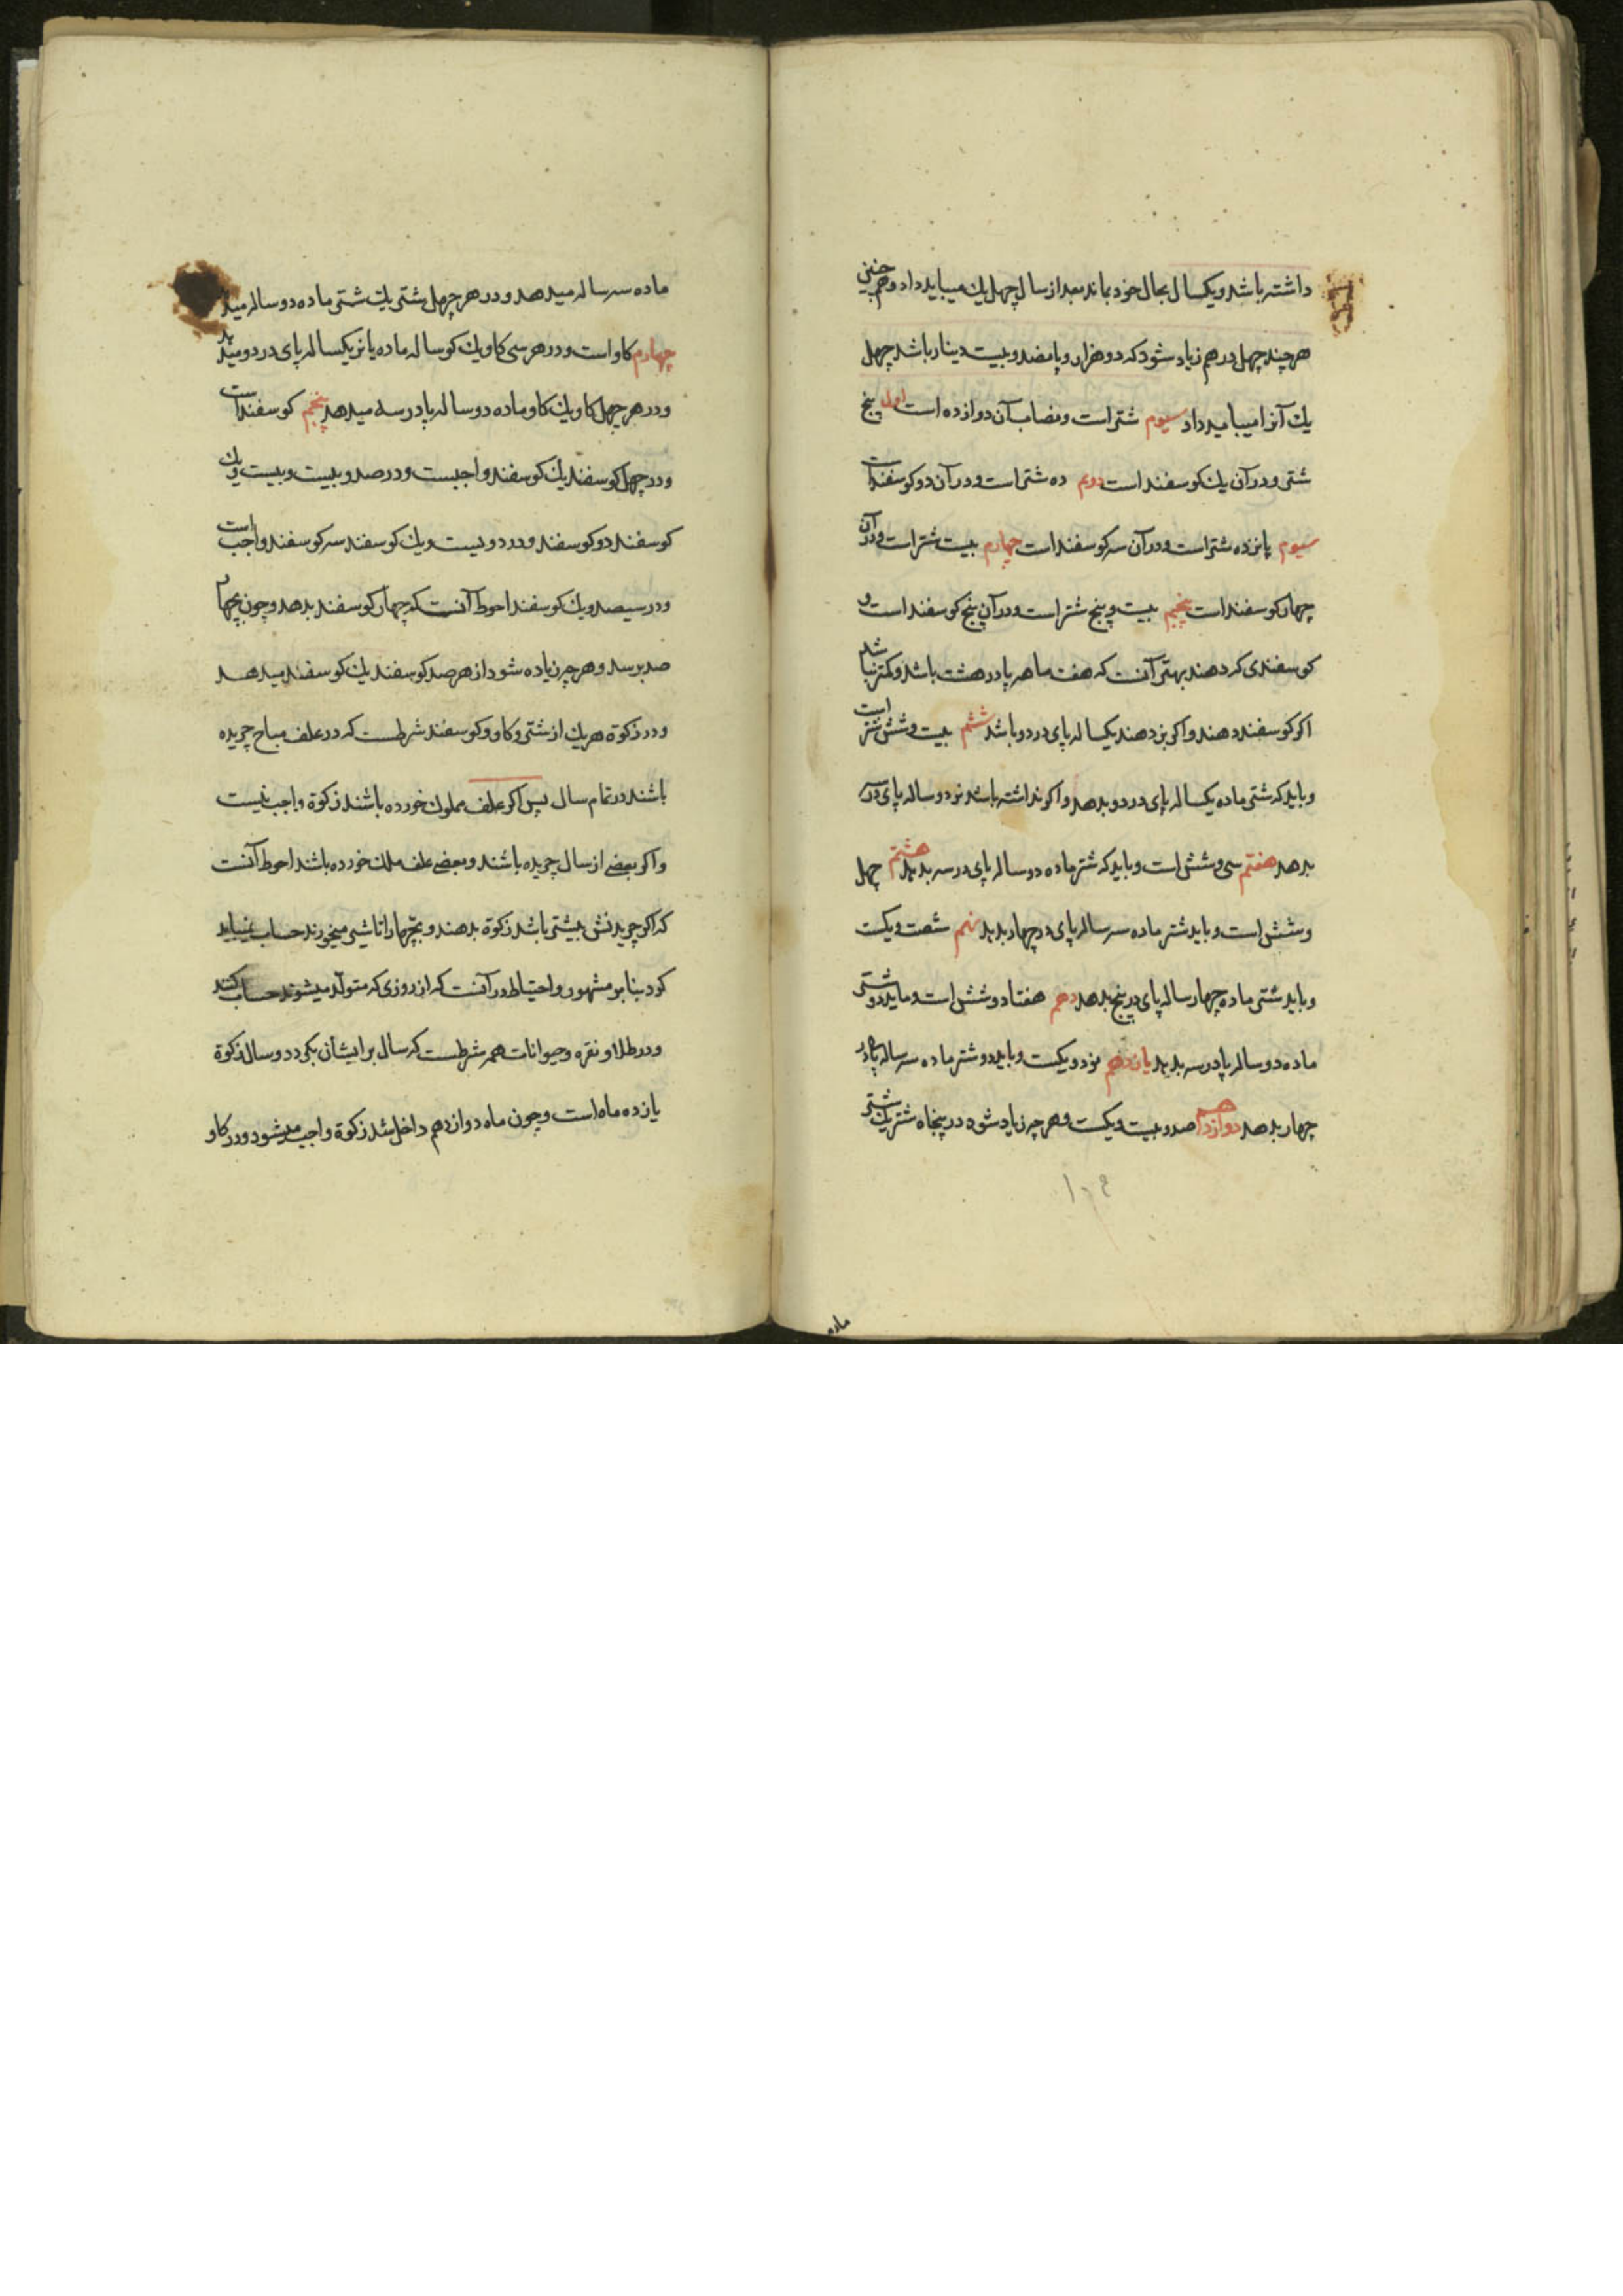 داشته باشد و یکسال بحال خود بماند بعد از سال چهل یك میباید داد و همچنین
هر چند چهل درهم زیاد شود که دو هزار و پانصد و بیست دینار باشد چهل
یك آنرا میباید داد سیوم شتر است و نصاب آن دوازده است اول پنج
شتر و در آن یك کوسفند است دویم ده شتر است و در آن دو کوسفند است
سیوم پانزده شتر است و در آن سه کوسفند است چهارم بیست شتر است و در آن
چهار کوسفند است پنجم بیست و پنج شتر است و در آن پنج کوسفند است و
کوسفندی که دهند بهتر آنست که هفت ماهه پا در هشت باشد و کمتر نباشد
اکر کوسفند دهند و اکر بز دهند یکساله پای در دو باشد ششم بیست و شش شتر است
و باید که شتر ماده یکساله پای در دو بدهد و اکر نداشته باشد نر دو ساله پای در سه
بدهد هفتم سی و شش است و باید که شتر ماده دو ساله پای در سه بدهد هشتم چهل
و شش است و باید شتر ماده سه ساله پای در چهار بدهد نهم شصت و یکست
و باید شتر ماده چهار ساله پای در پنج بدهد دهم هفتاد و شش است و باید دو شتر
ماده دو ساله پا در سه بدهد یازدهم نود و یکست و باید دو شتر ماده سه ساله پا در
چهار بدهد دوازدهم صد و بیست و یکست و هر چه زیاد شود در پنجاه شتر یك شتر
۱۰۹
ماده
ماده سه ساله میدهد و در هر چهل شتر یك شتر ماده دو ساله میدهد
چهارم کاو است و در هر سی کاو یك کوساله ماده یا نر یکساله پای در دو میدهد
و در هر چهل کاو یك کاو ماده دو ساله پا در سه میدهد پنجم کوسفند است
و در چهل کوسفند یك کوسفند واجبست و در صد و بیست و بیست و یك
کوسفند دو کوسفند و در دویست و یك کوسفند سه کوسفند واجب است
و در سیصد و یك کوسفند احوط آنست که چهار کوسفند بدهد و چون بچهار
صد برسد و هر چه زیاده شود از هر صد کوسفند یك کوسفند میدهد
و در زکوة هر یك از شتر و کاو و کوسفند شرطست که در علف مباح چریده
باشند در تمام سال پس اکر علف مملوك خورده باشند زکوة واجب نیست
و اکر بعضی از سال چریده باشند و بعضی علف ملك خورده باشند احوط آنست
که اکر چریدنش بیشتر باشد زکوة بدهند و بچهها را تا شیر میخورند حساب نمیباید
کرد بنا بر مشهور و احتیاط در آنست که از روزی که متولد میشوند حساب کنند
و در طلا و نقره و حیوانات همه شرطست که سال بر ایشان بکردد و سال زکوة
یازده ماه است و چون ماه دوازدهم داخل شد زکوة واجب میشود و در کاو